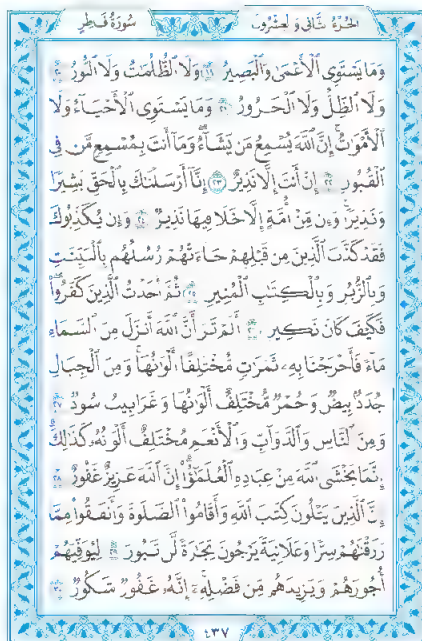 الجزء الثاني والعشرون
سورة فاطر
وَمَا يَسْتَوِي ٱلْأَعْمَىٰ وَٱلْبَصِيرُ ١٩ وَلَا ٱلظُّلُمَٰتُ وَلَا ٱلنُّورُ ٢٠
وَلَا ٱلظِّلُّ وَلَا ٱلْحَرُورُ ٢١ وَمَا يَسْتَوِي ٱلْأَحْيَآءُ وَلَا
ٱلْأَمْوَٰتُ ۚ إِنَّ ٱللَّهَ يُسْمِعُ مَن يَشَآءُ ۖ وَمَآ أَنتَ بِمُسْمِعٍ مَّن فِي
ٱلْقُبُورِ ٢٢ إِنْ أَنتَ إِلَّا نَذِيرٌ ٢٣ إِنَّآ أَرْسَلْنَٰكَ بِٱلْحَقِّ بَشِيرًا
وَنَذِيرًا ۚ وَإِن مِّنْ أُمَّةٍ إِلَّا خَلَا فِيهَا نَذِيرٌ ٢٤ وَإِن يُكَذِّبُوكَ
فَقَدْ كَذَّبَ ٱلَّذِينَ مِن قَبْلِهِمْ جَآءَتْهُمْ رُسُلُهُم بِٱلْبَيِّنَٰتِ
وَبِٱلزُّبُرِ وَبِٱلْكِتَٰبِ ٱلْمُنِيرِ ٢٥ ثُمَّ أَخَذْتُ ٱلَّذِينَ كَفَرُوا۟ ۖ
فَكَيْفَ كَانَ نَكِيرِ ٢٦ أَلَمْ تَرَ أَنَّ ٱللَّهَ أَنزَلَ مِنَ ٱلسَّمَآءِ
مَآءً فَأَخْرَجْنَا بِهِۦ ثَمَرَٰتٍ مُّخْتَلِفًا أَلْوَٰنُهَا ۚ وَمِنَ ٱلْجِبَالِ
جُدَدٌۢ بِيضٌ وَحُمْرٌ مُّخْتَلِفٌ أَلْوَٰنُهَا وَغَرَابِيبُ سُودٌ ٢٧
وَمِنَ ٱلنَّاسِ وَٱلدَّوَآبِّ وَٱلْأَنْعَٰمِ مُخْتَلِفٌ أَلْوَٰنُهُۥ كَذَٰلِكَ ۗ
إِنَّمَا يَخْشَى ٱللَّهَ مِنْ عِبَادِهِ ٱلْعُلَمَٰٓؤُا۟ ۗ إِنَّ ٱللَّهَ عَزِيزٌ غَفُورٌ ٢٨
إِنَّ ٱلَّذِينَ يَتْلُونَ كِتَٰبَ ٱللَّهِ وَأَقَامُوا۟ ٱلصَّلَوٰةَ وَأَنفَقُوا۟ مِمَّا
رَزَقْنَٰهُمْ سِرًّا وَعَلَانِيَةً يَرْجُونَ تِجَٰرَةً لَّن تَبُورَ ٢٩ لِيُوَفِّيَهُمْ
أُجُورَهُمْ وَيَزِيدَهُم مِّن فَضْلِهِۦٓ ۚ إِنَّهُۥ غَفُورٌ شَكُورٌ ٣٠
٤٣٧